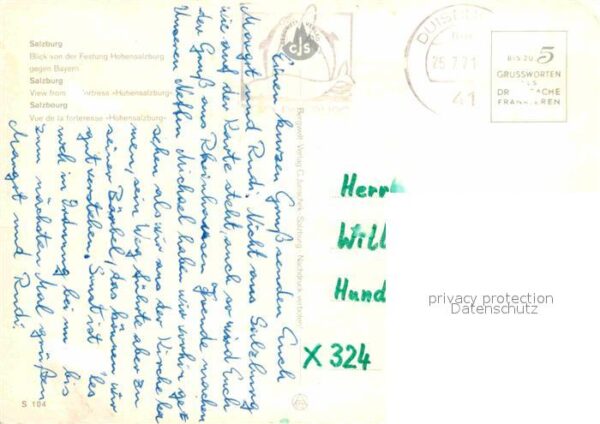 Salzburg
Blick von der Festung Hohensalzburg
gegen Bayern
Salzburg
View from fortress »Hohensalzburg«
Salzbourg
Vue de la forteresse »Hohensalzburg«
Einen kurzen Gruß senden Euch
Margot und Rudi. Nicht aus Salzburg
wie auf der Karte steht, auch so wird Euch
der Gruß aus Rheinhausen Freude machen
Unseren Neffen Michael haben wir vorhin ge
sehen als wir aus der Kirche ka
men, sein Weg führte aber zu
seiner Bärbel, das können wir
gut verstehen. Sonst ist es
noch in Ordnung bei uns bis
zum nächsten Mal grüßen
Margot und Rudi.
S 104
Bergwelt Verlag C. Salzburg Nachdruck verboten
CS
DUISBURG
25.7.71
41
BIS ZU 5
GRUSSWORTEN
ALS
DRUCKSACHE
FRANKIEREN
Herr
Will
Hund
X 324
privacy protection
Datenschutz